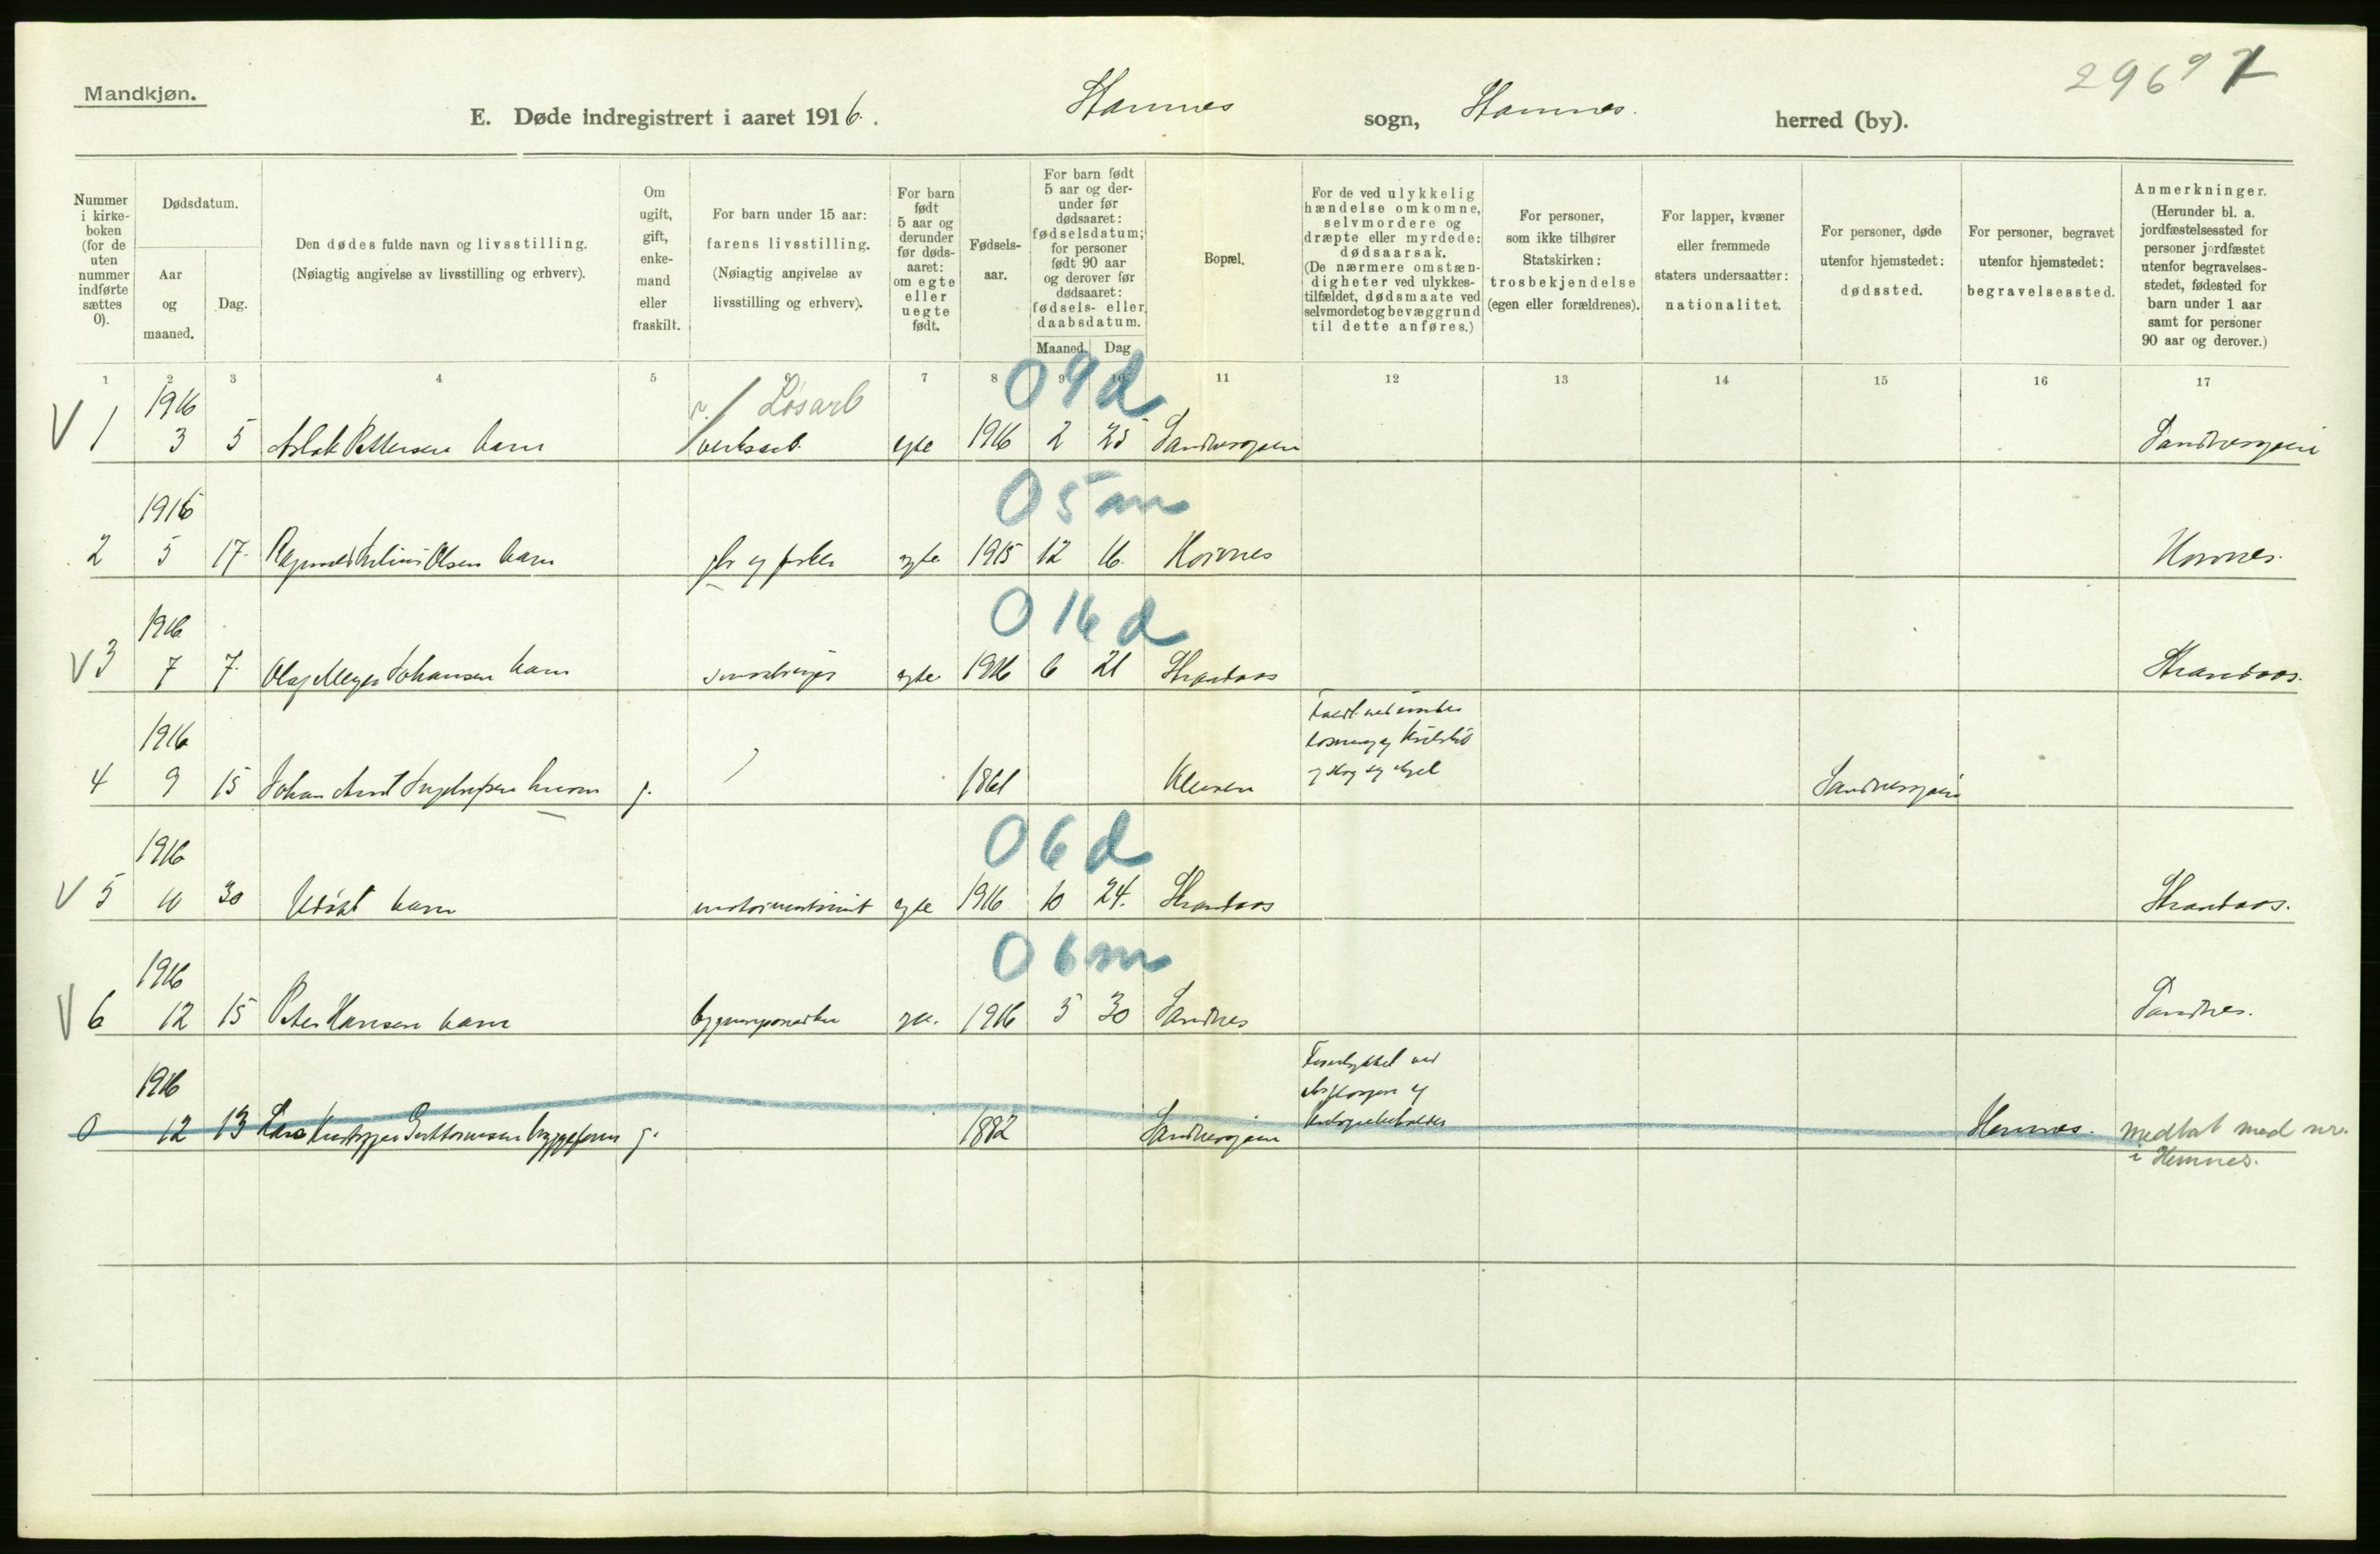 Mandkjøn.
29697
E. Døde indregistrert i aaret 1916. Stamnes sogn, Stamnes. herred (by).
Nummer i kirkeboken (for de uten nummer indførte sættes 0).
Dødsdatum.
Aar og maaned.
Dag.
Den dødes fulde navn og livsstilling.
(Nøiagtig angivelse av livsstilling og erhverv).
Om ugift, gift, enkemand eller fraskilt.
For barn under 15 aar:
farens livsstilling.
(Nøiagtig angivelse av livsstilling og erhverv).
For barn født 5 aar og derunder før dødsaaret: om egte eller uegte født.
Fødselsaar.
For barn født 5 aar og derunder før dødsaaret: fødselsdatum; for personer født 90 aar og derover før dødsaaret: fødsels- eller daabsdatum.
Maaned. Dag
Bopæl.
For de ved ulykkelig hændelse omkomne, selvmordere og dræpte eller myrdede: dødsaarsak.
(De nærmere omstændigheter ved ulykkestilfældet, dødsmaate ved selvmordet og bevæggrund til dette anføres.)
For personer, som ikke tilhører Statskirken: trosbekjendelse (egen eller forældrenes).
For lapper, kvæner eller fremmede staters undersaatter: nationalitet.
For personer, døde utenfor hjemstedet: dødssted.
For personer, begravet utenfor hjemstedet: begravelsessted.
Anmerkninger.
(Herunder bl. a. jordfæstelsessted for personer jordfæstet utenfor begravelsesstedet, fødested for barn under 1 aar samt for personer 90 aar og derover.)
1 2 3 4 5 6 7 8 9 10 11 12 13 14 15 16 17
1916 Løsarb 09d
V 1 3 5 Aslak Pettersen barn verksarb. egte 1916 2 25 Sandnessjøen Sandnessjøen
1916 05m
2 5 17. Olsen barn og fisker egte 1915 12 16. Hornes Hornes.
1916 016d
V 3 7 7. Olaf Meyer Johansen barn egte 1916 6 21 Strandaas Strandaas.
1916
4 9 15 Johan g. 1861 Kleiven Sandnessjøen
1916 06d
V 5 10 30 Udøbt barn egte 1916 10 24. Strandaas Strandaas.
1916 06m
V 6 12 15 Peter Hansen barn 1916 5 30 Sandnes Sandnes.
1916
0 12 13 g. 1882 Sandnessjøen Forulykket ved Hemnes. medtat med nr.
i Hemnes.